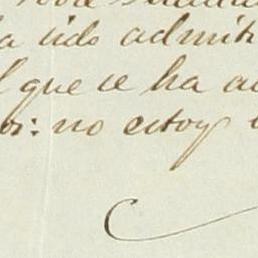 a sido admiti
l que se ha a
os: no estoy